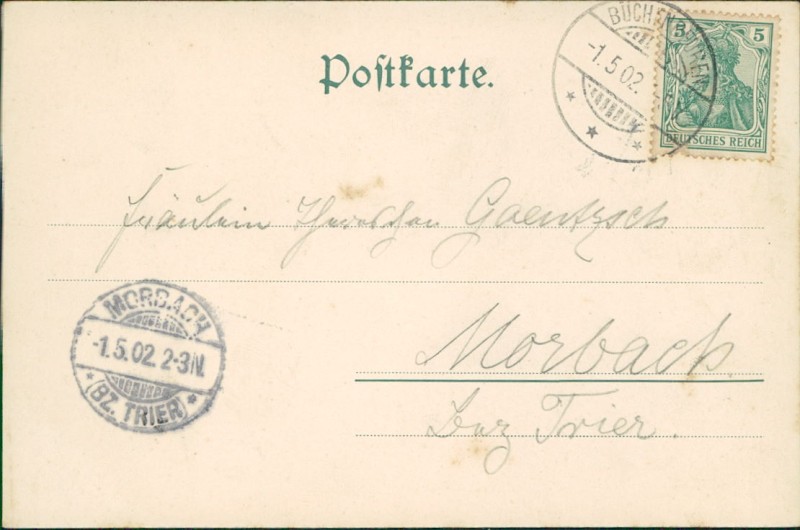 Postkarte.
BÜCHENBEUREN
-1.5.02.
5 5
DEUTSCHES REICH
Fräulein Goentzsch
MORBACH
-1.5.02.2-3N.
(BZ. TRIER)
Morbach
Bez Trier.